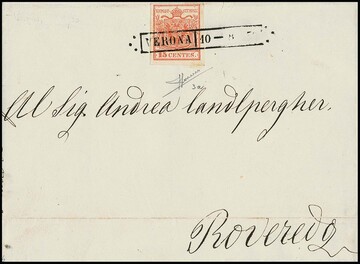 VERONA 10 —
15 CENTES.
Al Sig. Andrea Landlpergher.
Roveredo